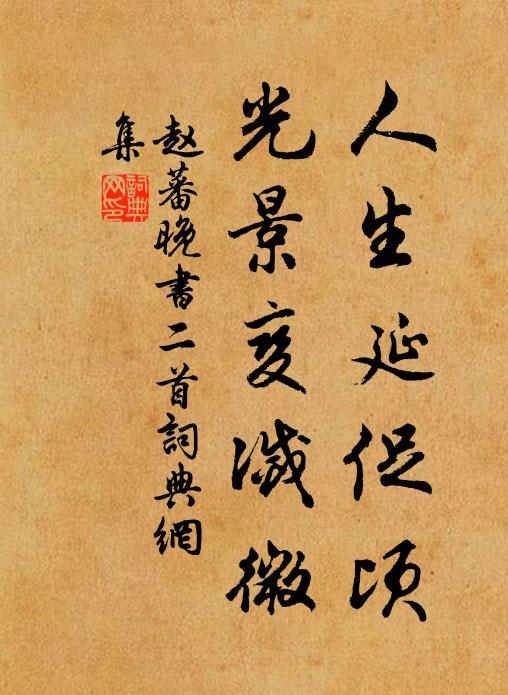 人生延促頃
光景变滅微
赵蕃晚書二首詞典網
集
詞典
网印